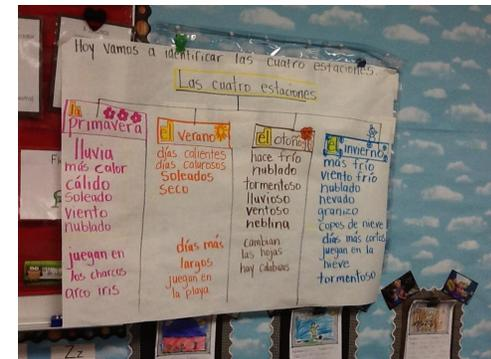 Hoy vamos a identificar las cuatro estaciones.
Las cuatro estaciones
la primavera
lluvia
más calor
cálido
soleado
viento
nublado
juegan en
los charcos
arco iris
el verano
días calientes
días calurosos
soleados
seco
días más
largos
juegan en
la playa
el otoño
hace frío
nublado
tormentoso
lluvioso
ventoso
neblina
cambian
las hojas
hay calabazas
el invierno
más frío
viento frío
nublado
nevado
granizo
copos de nieve
días más cortos
juegan en la
nieve
tormentoso
Zz